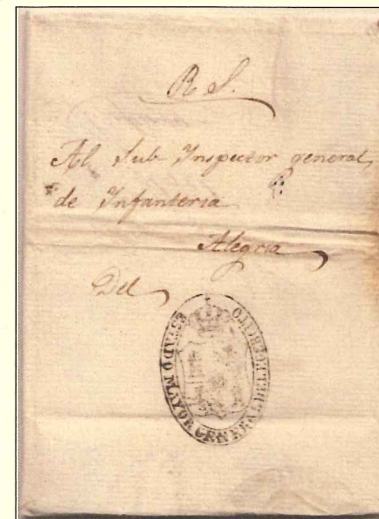 R S.
Al Sub Inspector general
de Infanteria
Alegria
Del
ESTADO MAYOR GENERAL DEL EGERCITO